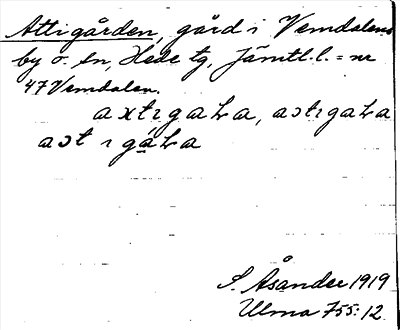 Attigården, gård i Vemdalens
by o. sn, Hede tg, Jämtl.l. = nr
47 Vemdalen.
axtıgaƚa, aɔtıgaƚa
aɔt ı gáƚa
S. Åsander 1919
Ulma 755:12